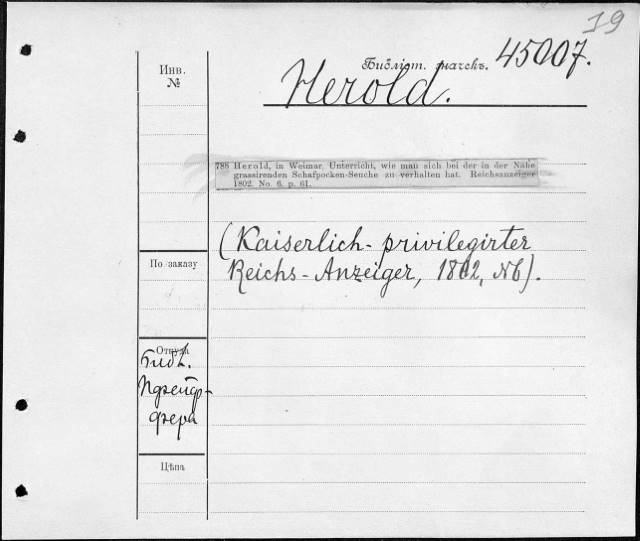 19
Инв.
№
Библіот. значекъ. 45007.
Herold.
785 Herold, in Weimar, Unterricht, wie man sich bei der in der Nähe
grassirenden Schafpocken-Seuche zu verhalten hat. Reichsanzeiger
1802. No. 6. p. 61.
(Kaiserlich-privilegirter
Reichs-Anzeiger, 1802, №6).
По заказу
Откуда
Библ.
Пфейф-
фера
Цѣна